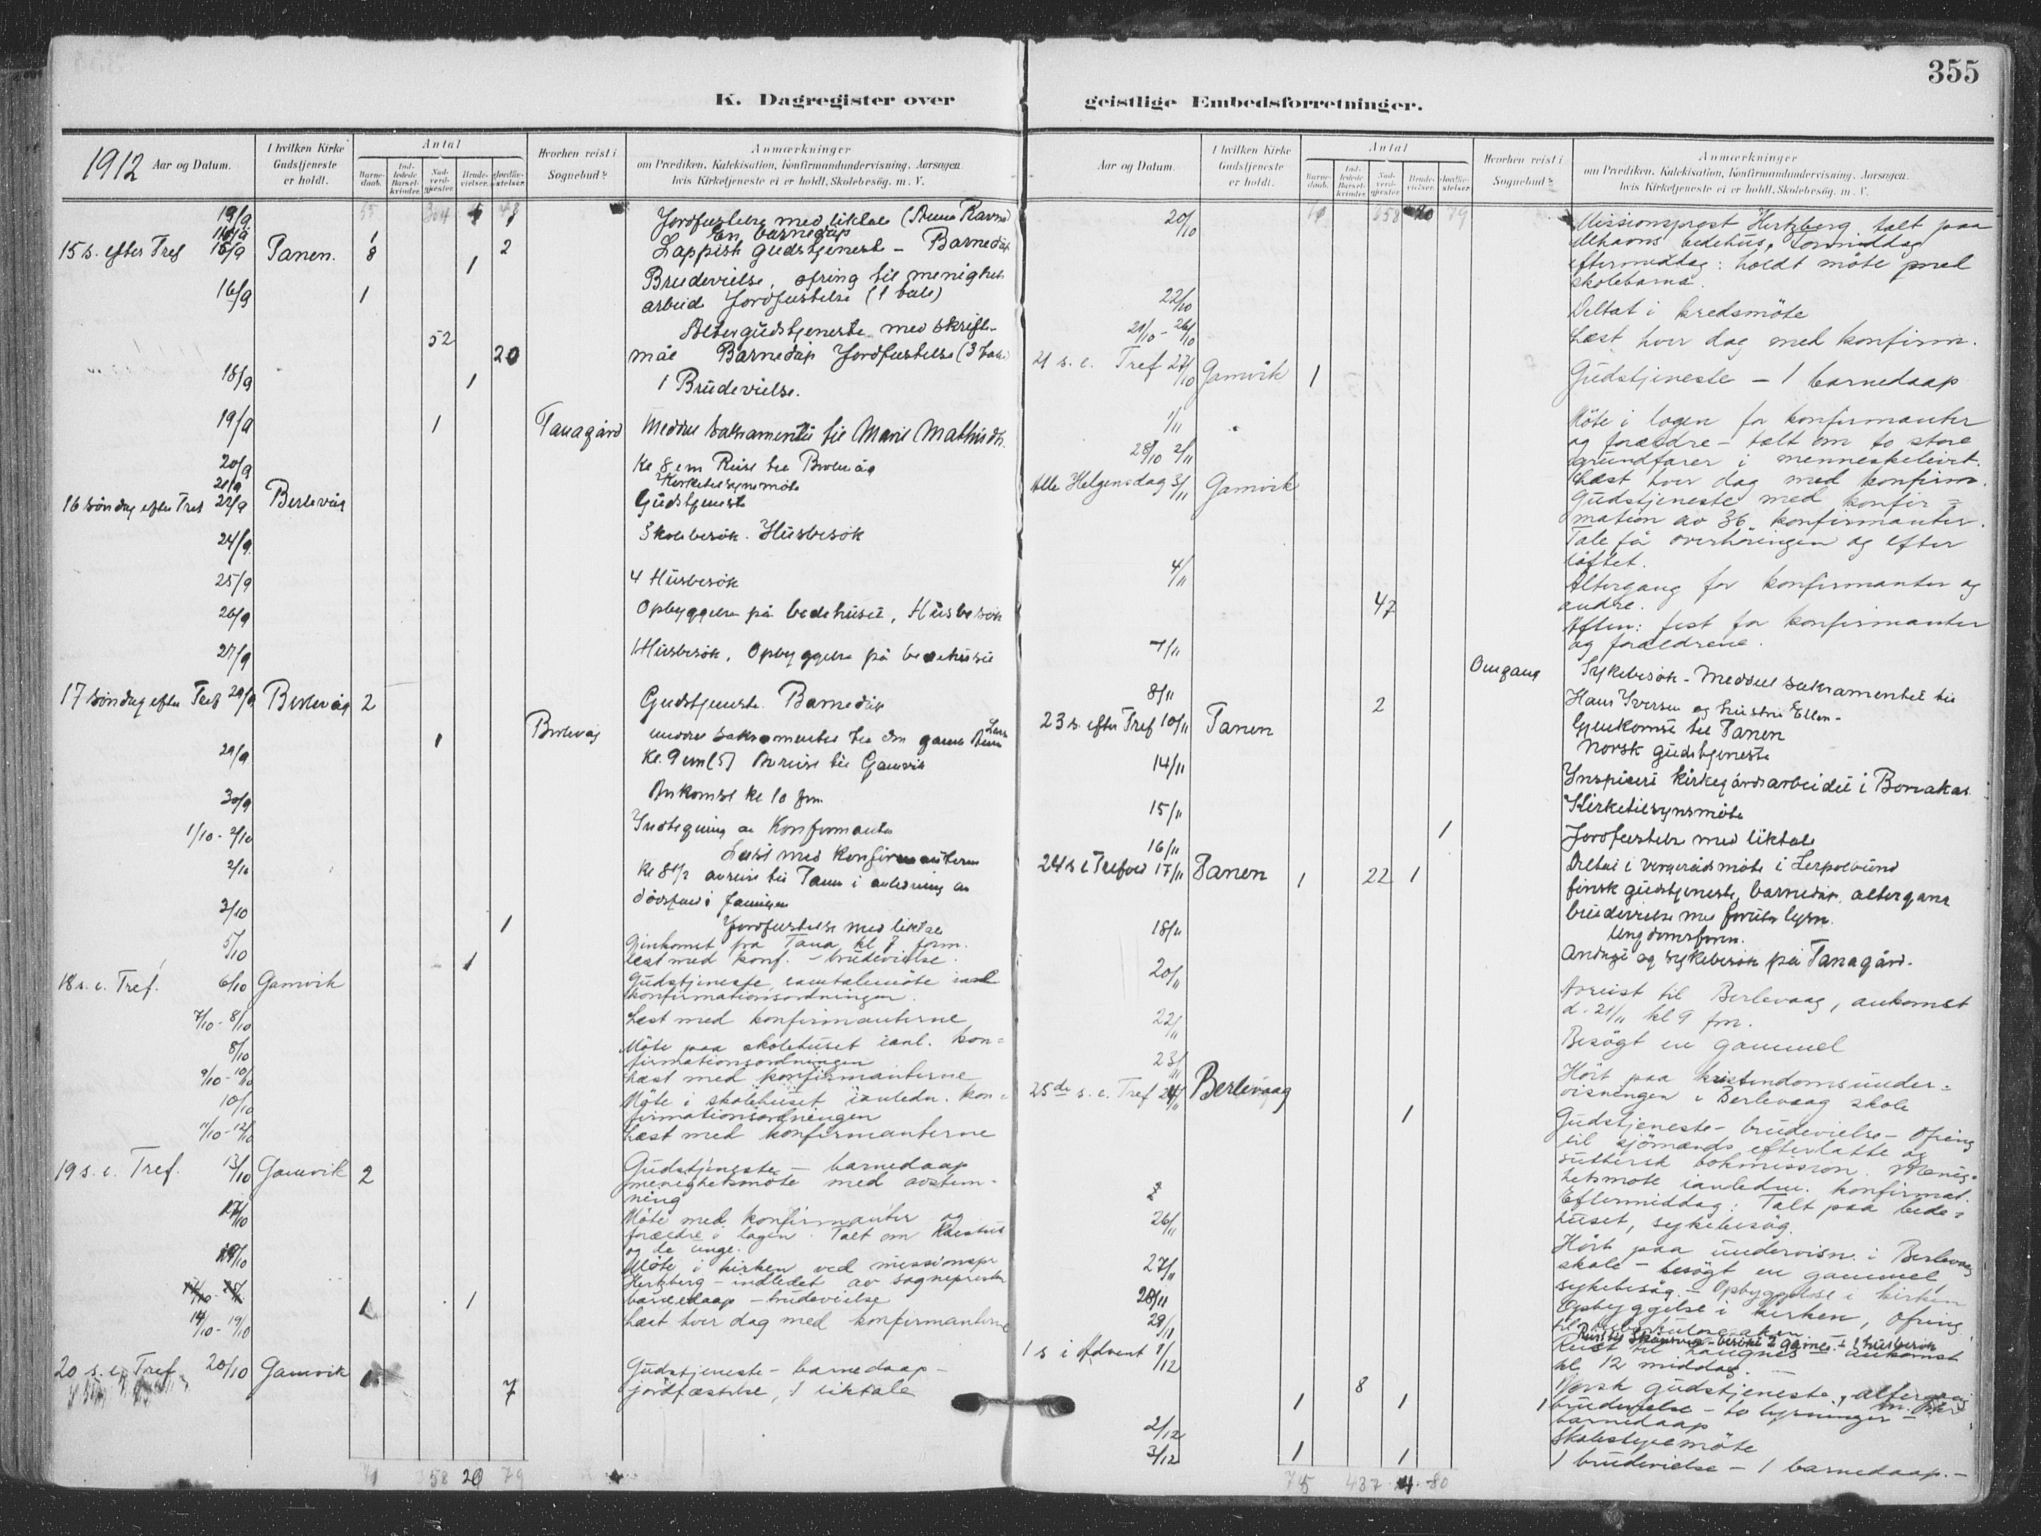 355
K. Dagregister over geistlige Embedsforretninger.
1912 Aar og Datum.
I hvilken Kirke Gudstjeneste er holdt.
Antal
Barnedaab.
Indledede Barselkvinder.
Nadverdgjester.
Brudevielser.
Jordfæstelser.
Hvorhen reist i Sognebud?
Anmærkninger
om Prædiken, Katekisation, Konfirmandundervisning, Aarsagen
hvis Kirketjeneste ei er holdt, Skolebesøg. m. V.
13/9 Jordfæstelse med liktale
1 En barnedåp
15 s. efter Tref 15/9 Tanen. 8 2 Lappisk gudstjeneste - Barnedåp
1 Brudevielse, ofring til menighets
16/9 1 arbeid Jordfæstelse (1 tale)
52 Altergudstjeneste med skrifte-
20 mål Barnedåp Jordfæstelse (3 tale)
18/9 1 1 Brudevielse.
19/9 1 Tanagård Meddelt sakramentet til Marit Mathisdt.
20/9 Kl 8 em Reise til Berlevåg
21/9 Kirketilsynsmöte
16 söndag efter Tref 22/9 Berlevåg Gudstjeneste
24/9 Skolebesök. Husbesök
25/9 4 Husbesök
26/9 Opbyggelse på bedehuset, Husbesök
27/9 1 Husbesök, Opbyggelse på bedehuset
17 söndag efter Tref 29/9 Berlevåg 2 Gudstjeneste. Barnedåp
1 Berlevåg meddelt sakramentet til den gamle
29/9 Kl. 9 em Avreise til Gamvik
30/9 Ankomst kl 10 fm
1/10 - 2/10 Indtegning av Konfirmanter
Læst med konfirmanterne
2/10 Kl 8 1/2 avreise til Tanen i anledning av
dödsfald i familien
3/10 1 Jordfæstelse med liktale
5/10 Gjenkomst fra Tana kl 7 form.
1 læst med konf. - brudevielse.
18 s. e. Tref. 6/10 Gamvik Gudstjeneste, samtalemöte ianl
konfirmationsordningen.
7/10 - 8/10 Læst med konfirmanterne
8/10 Möte paa skolehuset ianl. kon-
firmationsordningen
9/10 - 10/10 Læst med konfirmanterne
10/10 Möte i skolehuset ianledn. kon-
firmationsordningen
11/10 - 12/10 Læst med konfirmanterne
19 s. e. Tref. 13/10 Gamvik 2 Gudstjeneste - barnedaap
menighetsmöte med avstem-
ning
17/10 Möte med konfirmanter og
forældre i logen. Talt om Kristus
og de unge.
Möte i kirken ved missionspr
Hertzberg - indledet av sogneprester
1 1 barnedaap - brudevielse
14/10 - 19/10 Læst hver dag med konfirmanterne
20 s. e. Tref 20/10 Gamvik 1 Gudstjeneste - barnedaap -
7 jordfæstelse, 1 liktale
71 20 79
Aar og Datum.
I hvilken Kirke Gudstjeneste er holdt.
Antal
Barnedaab.
Indledede Barselkvinder.
Nadverdgjester.
Brudevielser.
Jordfæstelser.
Hvorhen reist i Sognebud?
Anmærkninger
om Prædiken, Katekisation, Konfirmandundervisning, Aarsagen
hvis Kirketjeneste ei er holdt, Skolebesøg. m. V.
20/10 Missionsprest Hertzberg talt paa
Mehavns bedehus, Formiddag
eftermiddag: holdt möte med
skolebarna.
22/10 Deltat i kredsmöte
21/10 - 26/10 Læst hver dag med konfirm.
21 s. e. Tref 27/10 Gamvik 1 Gudstjeneste - 1 barnedaap
1/11 Möte i logen for konfirmanter
og forældre - talt om to store
grundfarer i menneskelivet.
28/10 2/11 Læst hver dag med konfirm.
Alle Helgensdag 3/11 Gamvik Gudstjeneste med konfir-
mation av 36 konfirmanter.
Tale få overhöringen og efter
löftet.
4/11 Altergang for konfirmanter og
47 andre.
Aften: fest for konfirmanter
og forældrene.
7/11 Omgang Sykebesök - Meddelt sakramentet til
8/11 2 Hans Iversen og hustru Ellen -
Gjenkomst til Tanen
23 s. efter Tref 10/11 Tanen Norsk gudstjeneste
14/11 Inspiseret kirkegårdsarbeidet i Bonakas
15/11 Kirketilsynsmöte
1 Jordfæstelse med liktale
16/11 Deltat i vergerådsmöte i Leirpollbund
24 s e Trefold 17/11 Tanen 1 22 1 finsk gudstjeneste, barnedåp, altergang
brudevielse med foruten lysn.
Ungdomsforen.
18/11 Andagt og sykebesök på Tanagård.
20/11 Avreist til Berlevaag, ankomst
d. 21/11 kl 9 fm.
22/11 Besögt en gammel
23/11 Hört paa kristendomsunder-
visningen i Berlevaag skole
25de s. e. Tref 24/11 Berlevaag 1 Gudstjeneste - brudevielse - ofring
til sjömænds efterlatte og
luthersk bokmission. Menig-
hetsmöte ianledn. konfirmat.
Eftermiddag: Talt paa bede-
huset, sykebesög.
26/11 Hört paa undervisn. i Berlevaag
skole - besögt en gammel
27/11 sykebesög. - Opbyggelse i kirken
28/11 Opbyggelse i kirken, ofring
29/11 til
Reist til Langnes - ankomst
kl 12 middag.
1 s i Advent 1/12 8 Norsk gudstjeneste, altergang
1 1 1 brudevielse - to lysninger -
barnedaap
2/12 Skolestyremöte
3/12 1 1 1 brudevielse - 1 barnedaap. -
75 437 80